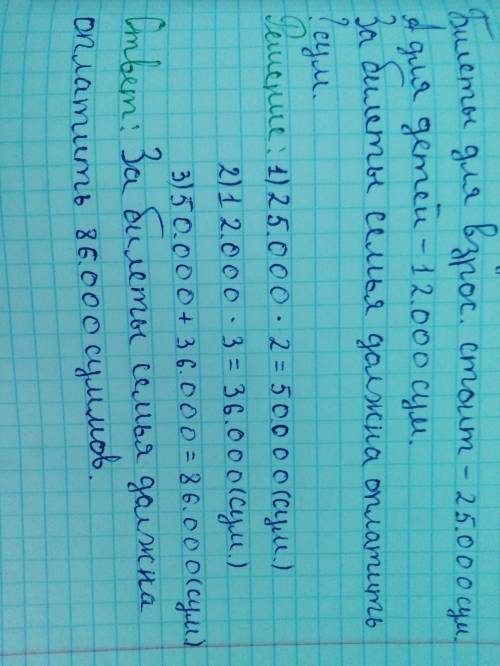 Билеты для взрос. стоит - 25.000 сум.
А для детей - 12.000 сум.
За билеты семья должна оплатить
? сум.
Решение: 1) 25.000 · 2 = 50000 (сум.)
2) 12.000 · 3 = 36.000 (сум.)
3) 50.000 + 36.000 = 86.000 (сум)
Ответ: За билеты семья должна
оплатить 86.000 суммов.